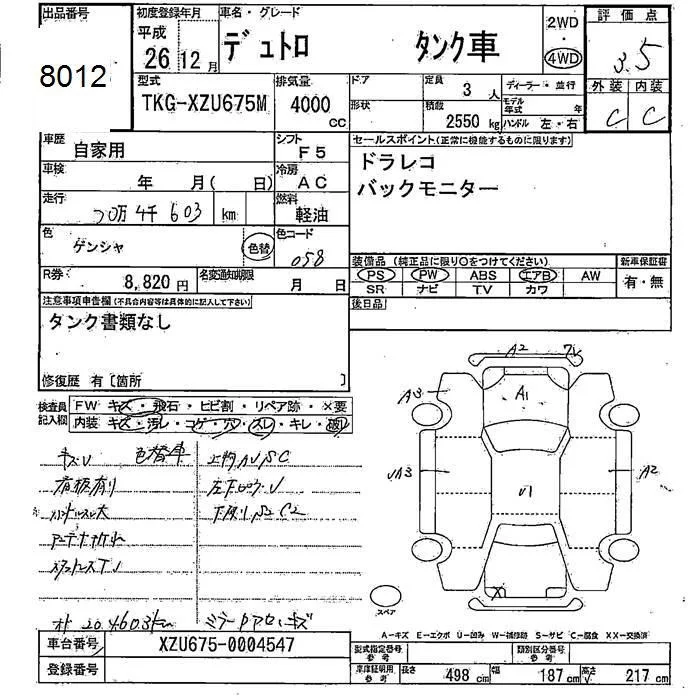 出品番号 8012
初度登録年月 平成 26 12月
車名・グレード デュトロ タンク車
2WD・4WD
評価点 3.5
型式 TKG-XZU675M
排気量 4000 CC
ドア 形状
定員 3 人
積載 2550 kg
ディーラー・並行
モデル年式 年
ハンドル 左・右
外装 内装
C C
車歴 自家用
シフト F5
セールスポイント(正常に機能するものに限ります)
ドラレコ
バックモニター
車検 年 月( 日)
冷房 AC
走行 20万4千603 km
燃料 軽油
色 ゲンシャ 色替
色コード 058
装備品(純正品に限り○をつけてください) 新車保証書
PS PW ABS エアB AW 有・無
SR ナビ TV カワ
R券 8,820円
名変通知期限 月 日
後日品
注意事項申告欄(不具合内容等は具体的に記入して下さい)
タンク書類なし
修復歴 有〔箇所 〕
検査員記入欄
FW キズ・飛石・ヒビ割・リペア跡・×要
内装 キズ・汚レ・コゲ・穴・スレ・キレ・破レ
キズU 色替車
看板有り
ハンドルスレ大
下廻りS2 C2
オド 204603km
A2
A3 A1
UA3 U1 A2
X
スペア
A-キズ E-エクボ U-凹み W-補修跡 S-サビ C-腐食 XX-交換済
車台番号 XZU675-0004547
登録番号
型式指定番号 参考
類別区分番号 参考
車庫証明用 参考 長さ 498 cm 幅 187 cm 高さ 217 cm